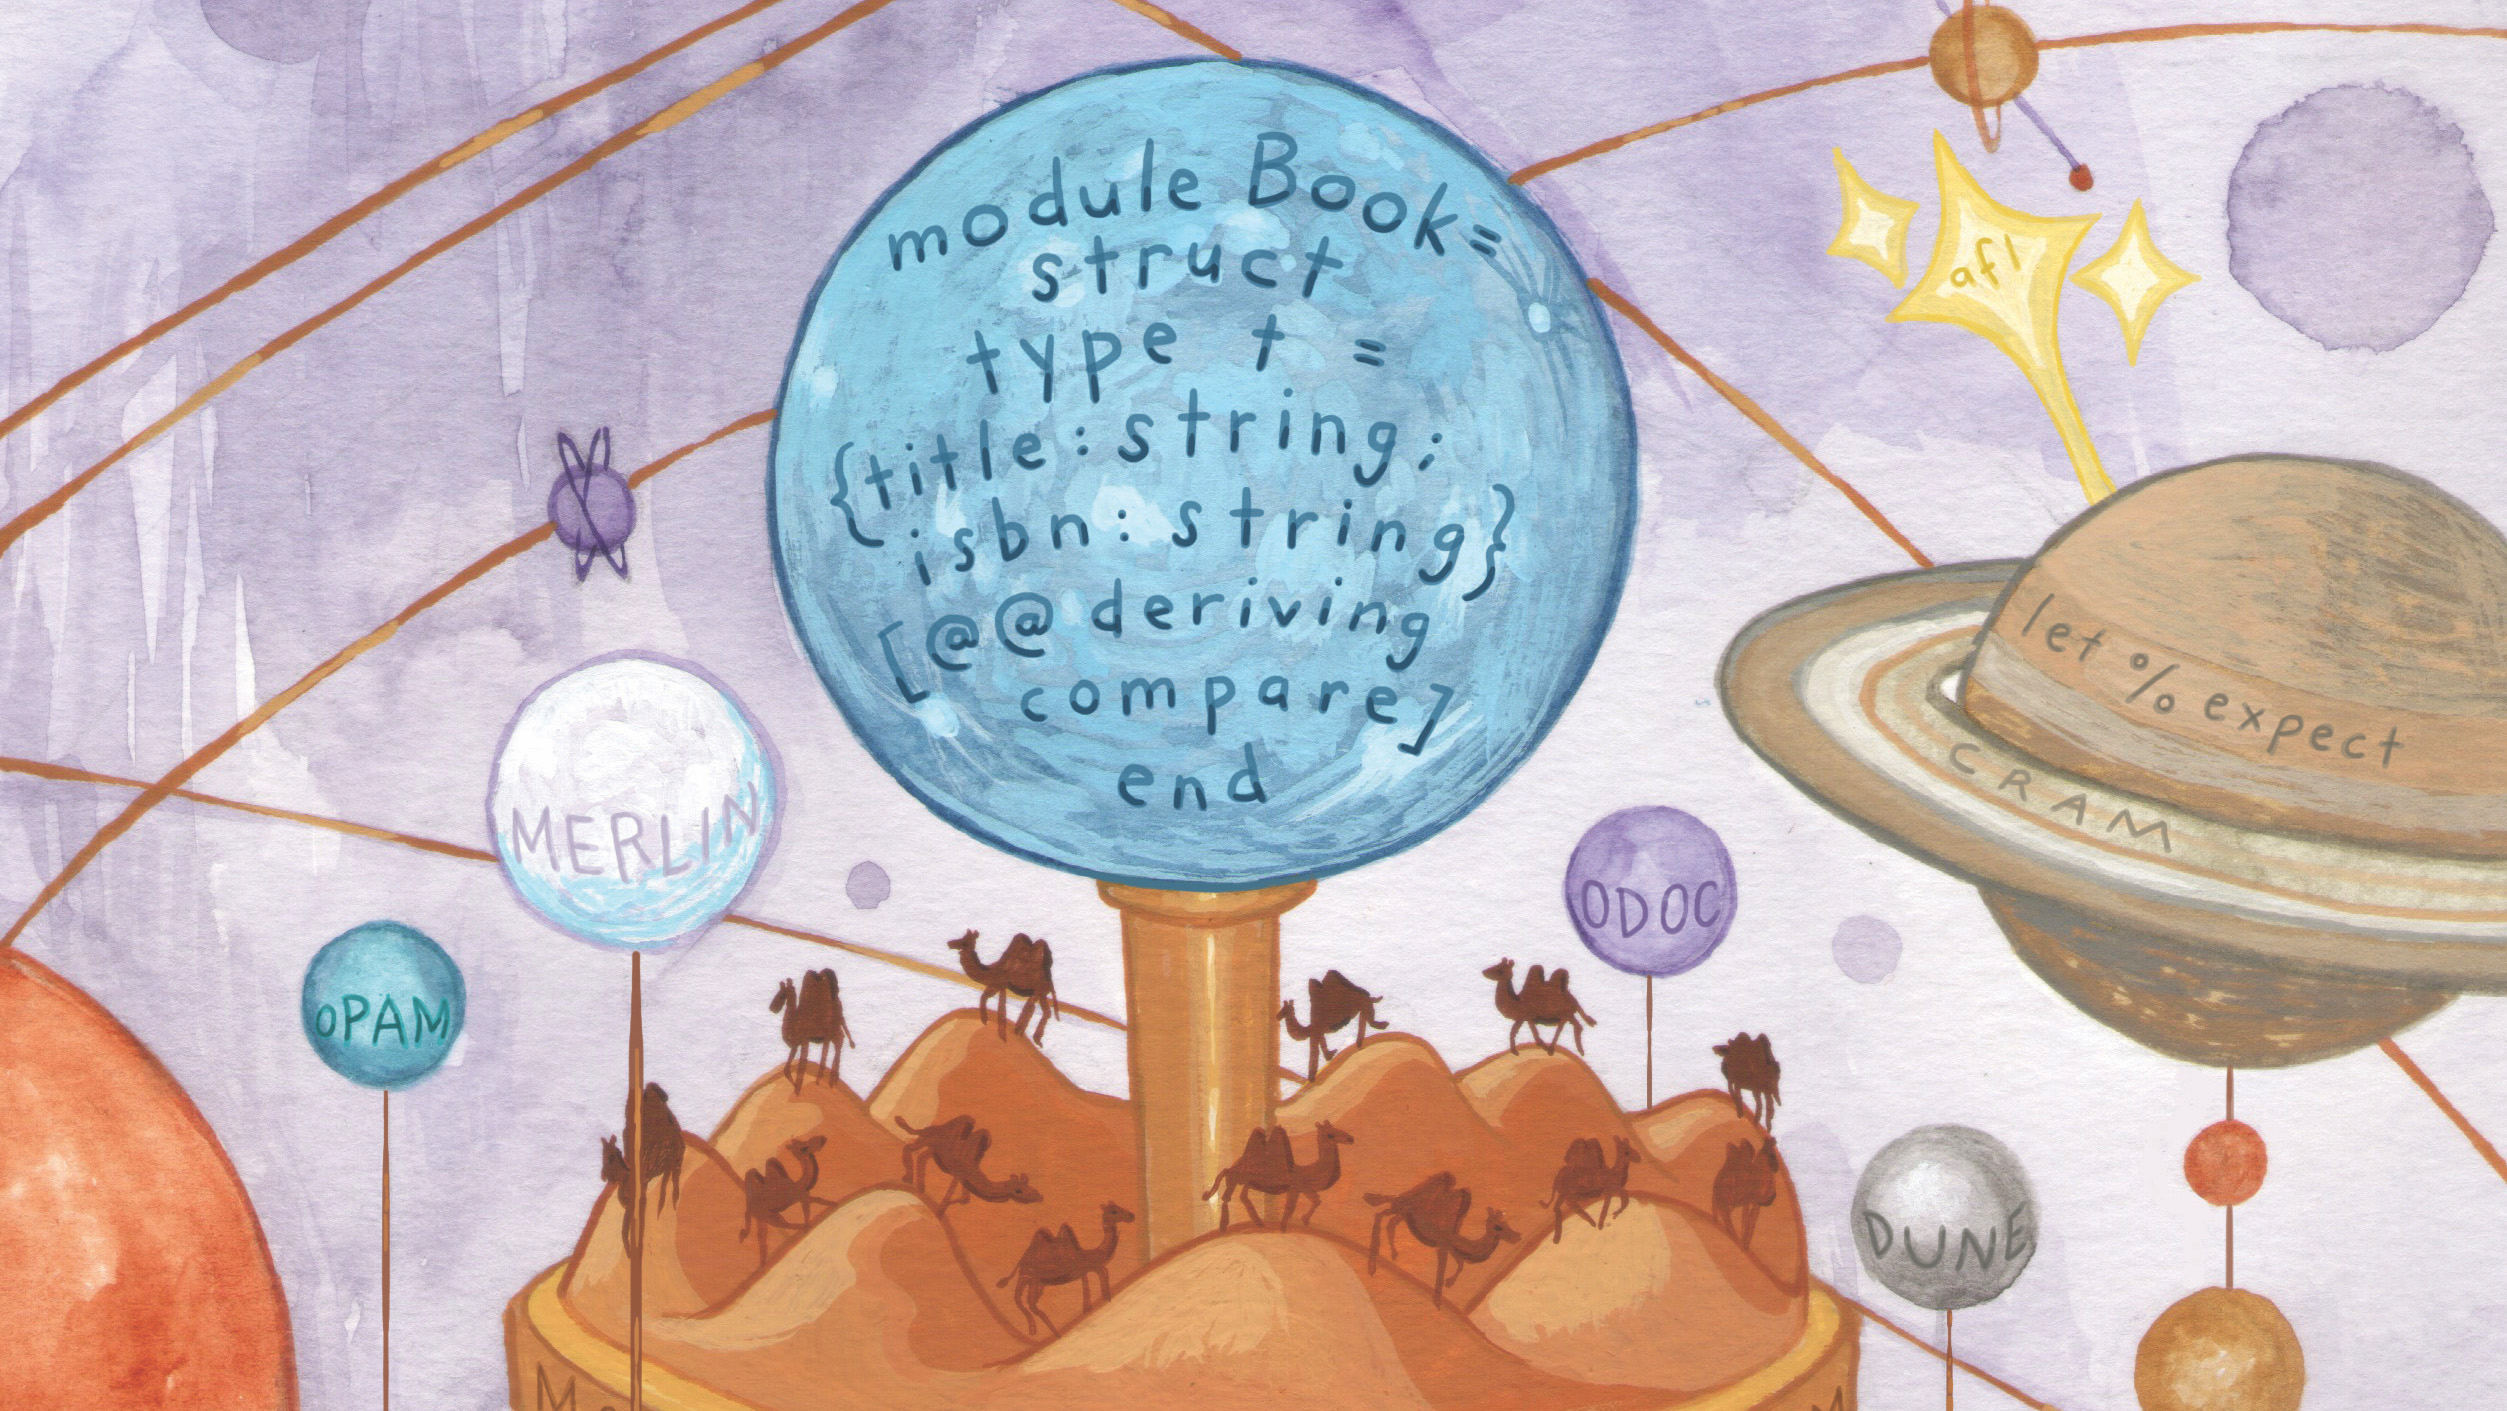 module Book=
struct
type t =
{title:string;
isbn:string}
[@@deriving
compare]
end
afl
let % expect
CRAM
MERLIN
ODOC
OPAM
DUNE